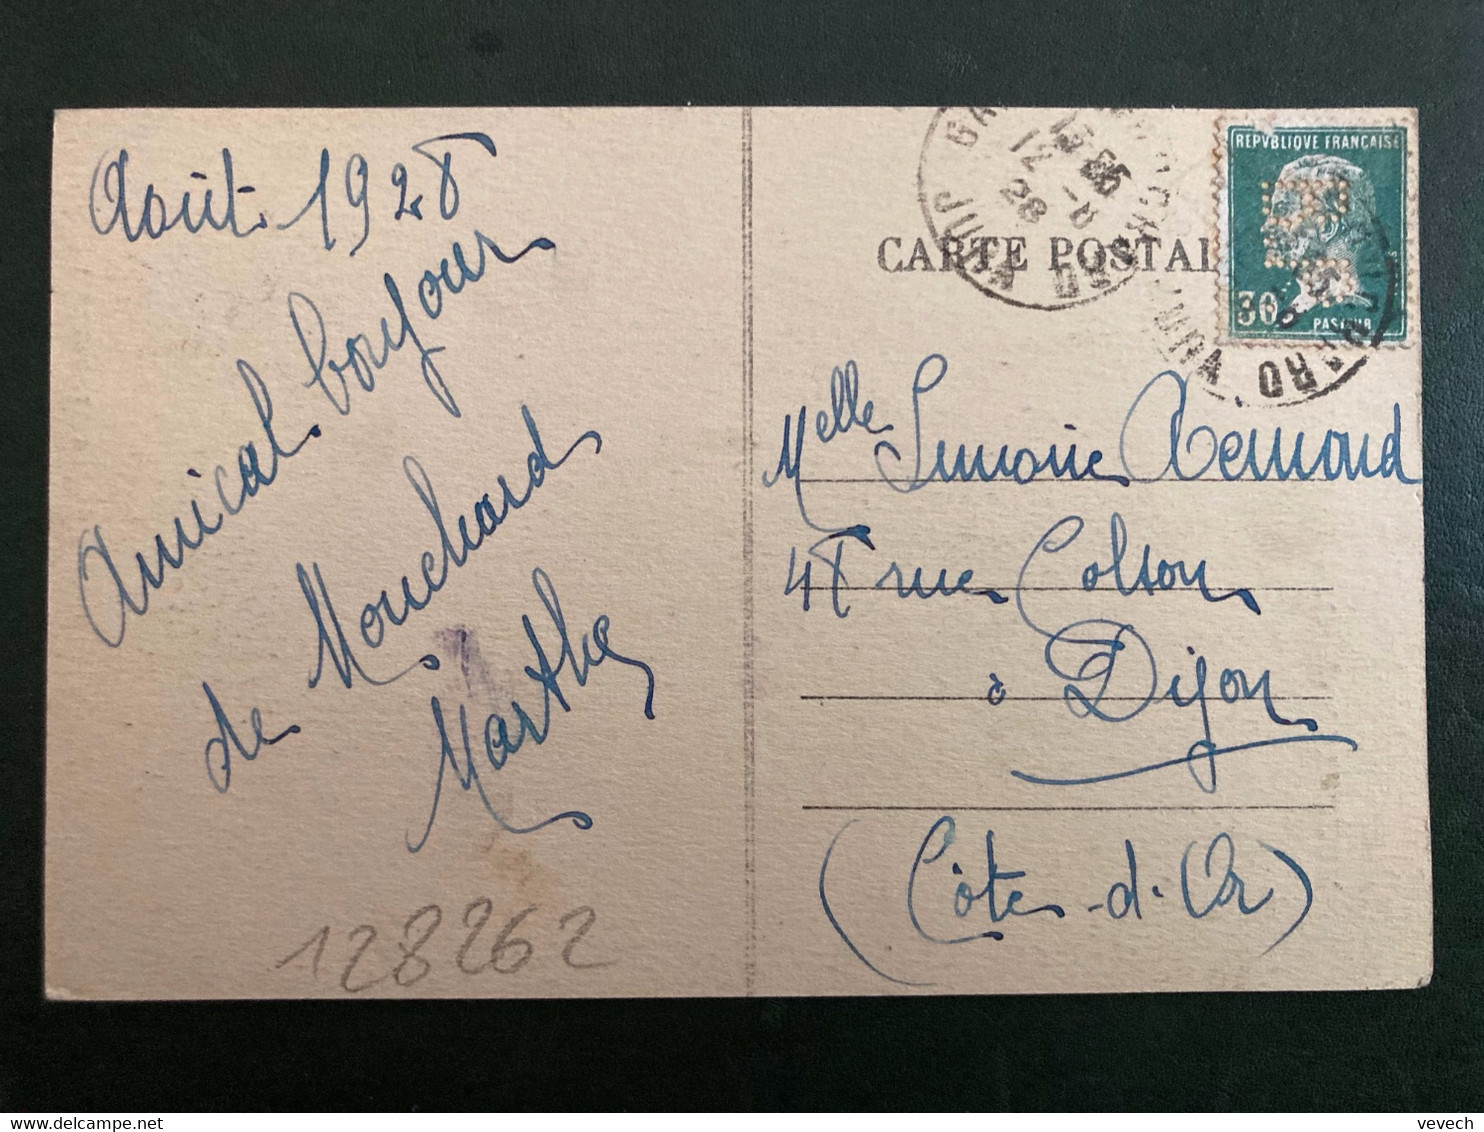 Août 1928
Amical bonjour
de Mouchard
Marthe
128262
CARTE POSTAL
REPVBLIQUE FRANÇAISE
30
PASTEUR
12 - 8
28
JURA
Melle Simone Remond
48 rue Colson
à Dijon
(Côte-d'Or)
vevech